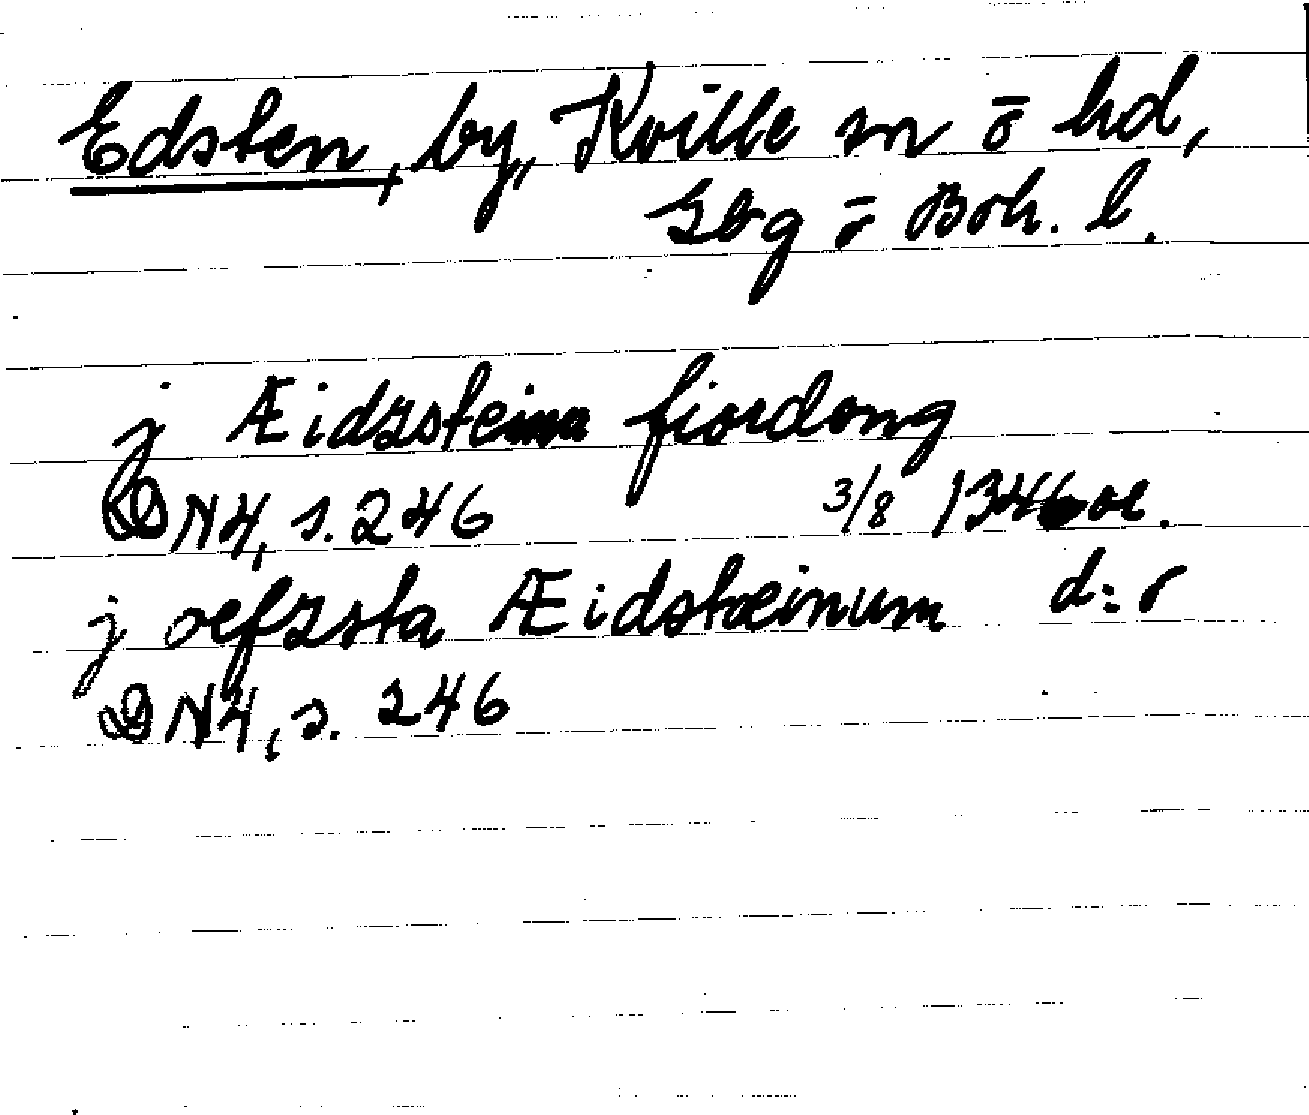 Edsten, by, Kville sn o hd,
Gbg o Boh. l.
j Æidzsteina fiordong
DN4, s. 246 3/8 1346 or.
j oefzsta Æidstæinum d:r
DN4, s. 246